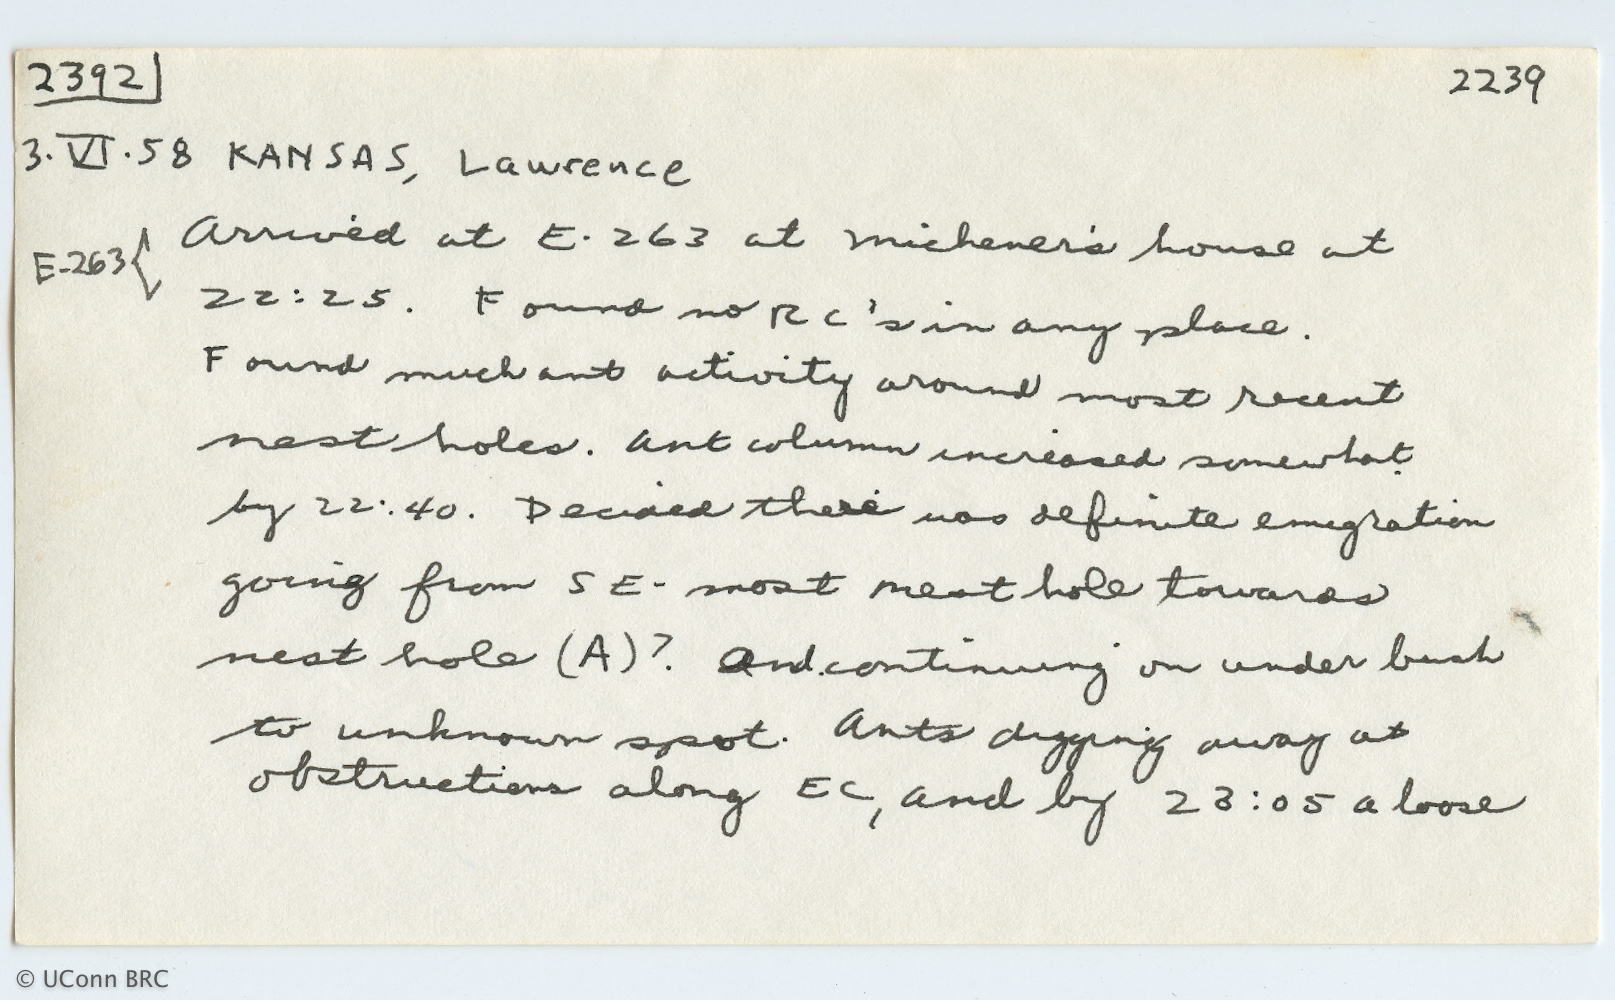 2392 2239
3.VI.58 KANSAS, Lawrence
E-263 { Arrived at E-263 at Michener's house at
22:25. Found no RC's in any place.
Found much ant activity around most recent
nest holes. Ant column increased somewhat
by 22:40. Decided there was definite emigration
going from SE-most nest hole towards
nest hole (A)?. And continuing on under bush
to unknown spot. Ants digging away at
obstructions along EC, and by 23:05 a loose
© UConn BRC